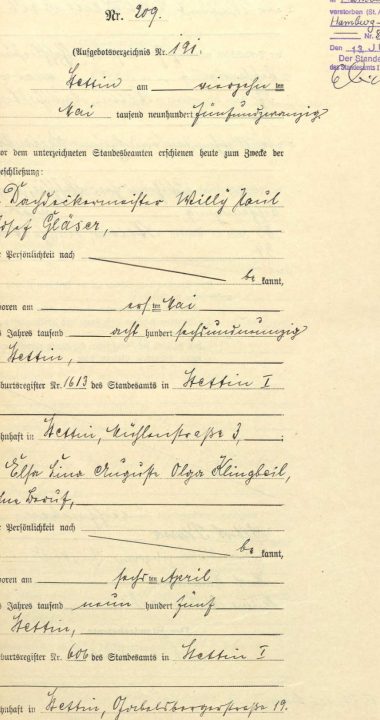 Nr. 209.
(Aufgebotsverzeichnis Nr. 191.
Stettin am vierzehn ten
Mai tausend neunhundert fünfundzwanzig
or dem unterzeichneten Standesbeamten erschienen heute zum Zwecke der
eschließung:
Dachdeckermeister Willy Paul
osef Gläser,
Persönlichkeit nach
be kannt,
oren am ersten Mai
Jahres tausend acht hundert sechsundneunzig
Stettin,
burtsregister Nr. 1613 des Standesamts in Stettin I
hnhaft in Stettin, Mühlenstraße 3,
Else Lina Auguste Olga Klingbeil,
hne Beruf,
Persönlichkeit nach
be kannt,
oren am sechs ten April
Jahres tausend neun hundert fünf
Stettin,
burtsregister Nr. 606 des Standesamts in Stettin I
hnhaft in Stettin, Gabelsbergerstraße 19.
verstorben (St. A
Hamburg-
Nr. 8
Den 13. JU
Der Stande
des Standesamts I